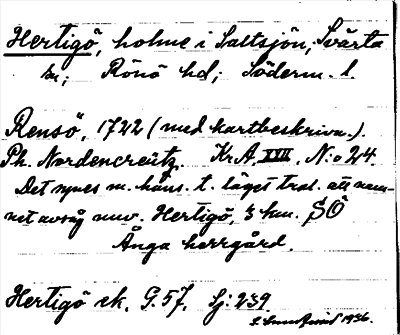 Hertigö, holme i Saltsjön, Svärta
sn; Rönö hd; Söderm. l.
Rensö, 1722 (med kartbeskrivn.).
Ph. Nordencreütz. Kr.A. XVII, N:o 24.
Det synes m. häns. t. läget trol. att nam-
net avsåg nuv. Hertigö, 3 km. SÖ
Ånga herrgård.
Hertigö ek. G. 57. Lj: 239
1936.